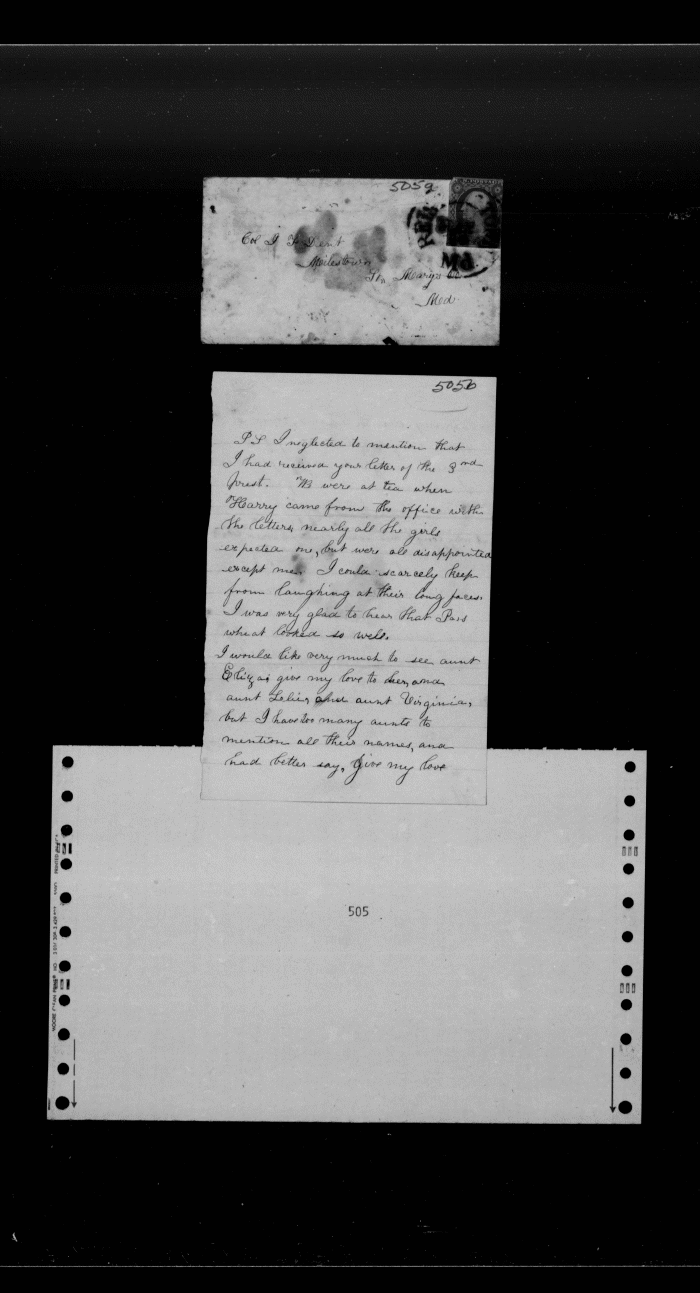 505a
Col J F Dent
Milestown
St. Marys Co
Md
Md.
505b
PS I neglected to mention that
I had received your letter of the 3rd
inst. We were at tea when
Harry came from the office with
the letters, nearly all the girls
expected one, but were all disappointed
except me. I could scarcely keep
from laughing at their long faces.
I was very glad to hear that Pa's
wheat looked so well.
I would like very much to see aunt
Eliza; give my love to her, and
aunt and aunt Virginia,
but I have too many aunts to
mention all their names, and
had better say, Give my love
505